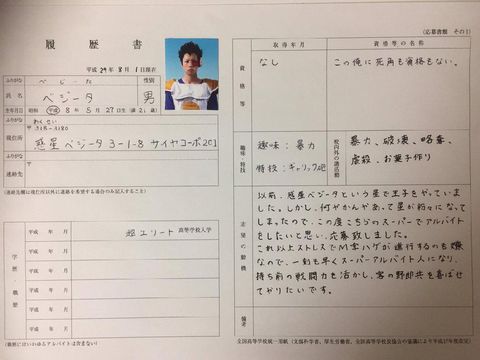 (応募書類 その1)
履歴書
平成 29年 8月 1日現在
ふりがな べじーた 性別
氏名 ベジータ 男
生年月日 昭和 平成 8年 5月 27日生 (満 21歳)
ふりがな わくせい
現住所 〒315-3150
惑星ベジータ 3-1-8 サイヤコーポ201
ふりがな
連絡先 〒
(連絡先欄は現住所以外に連絡を希望する場合のみ記入すること)
学歴・職歴
平成 年 月 超エリート 高等学校入学
平成 年 月
平成 年 月
平成 年 月
平成 年 月
平成 年 月
(職歴にはいわゆるアルバイトは含まない)
資格等
取得年月 資格等の名称
なし この俺に死角も資格もない。
趣味・特技
趣味:暴力
特技:ギャリック砲
校内外の諸活動
暴力、破壊、略奪、
虐殺、お菓子作り
志望の動機
以前、惑星ベジータという星で王子をやっていま
した。しかし、何やかんやあって星が粉々になって
しまったので、この度こちらのスーパーでアルバイト
をしたいと思い、応募致しました。
これ以上ストレスでM字ハゲが進行するのも嫌
なので、一刻も早くスーパーアルバイト人になり、
持ち前の戦闘力を活かし、客の野郎共を喜ばせ
てやりたいです。
備考
全国高等学校統一用紙(文部科学省、厚生労働省、全国高等学校長協会の協議により平成17年度改定)